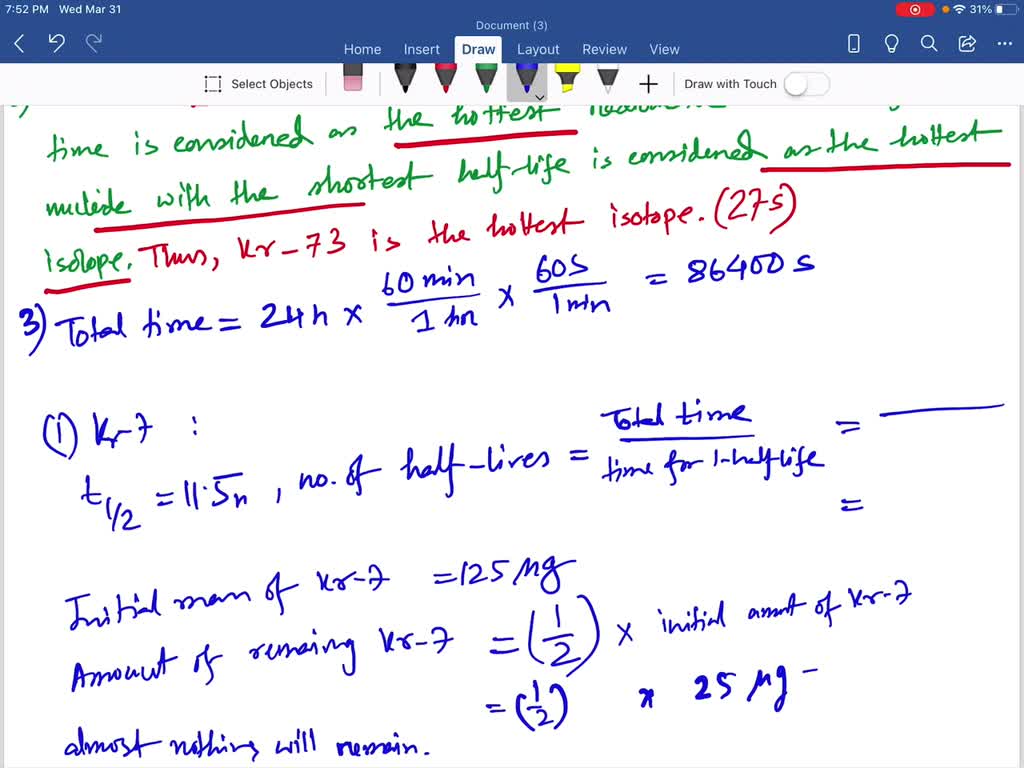 7:52 PM Wed Mar 31
31%
Document (3)
Home Insert Draw Layout Review View
Select Objects
Draw with Touch
time is considered as the hottest
nuclide with the shortest half-life is considered as the hottest
isotope. Thus, Kr-73 is the hottest isotope. (27s)
3) Total time = 24h x 60 min / 1 hr x 60s / 1 min = 86400 s
(i) Kr-7 :
t1/2 = 11.5 , no. of half-lives = Total time / time for 1-half-life =
=
Initial mass of Kr-7 = 125 μg
Amount of remaining Kr-7 = (1/2) x initial amount of Kr-7
= (1/2) x 25 μg -
almost nothing will remain.